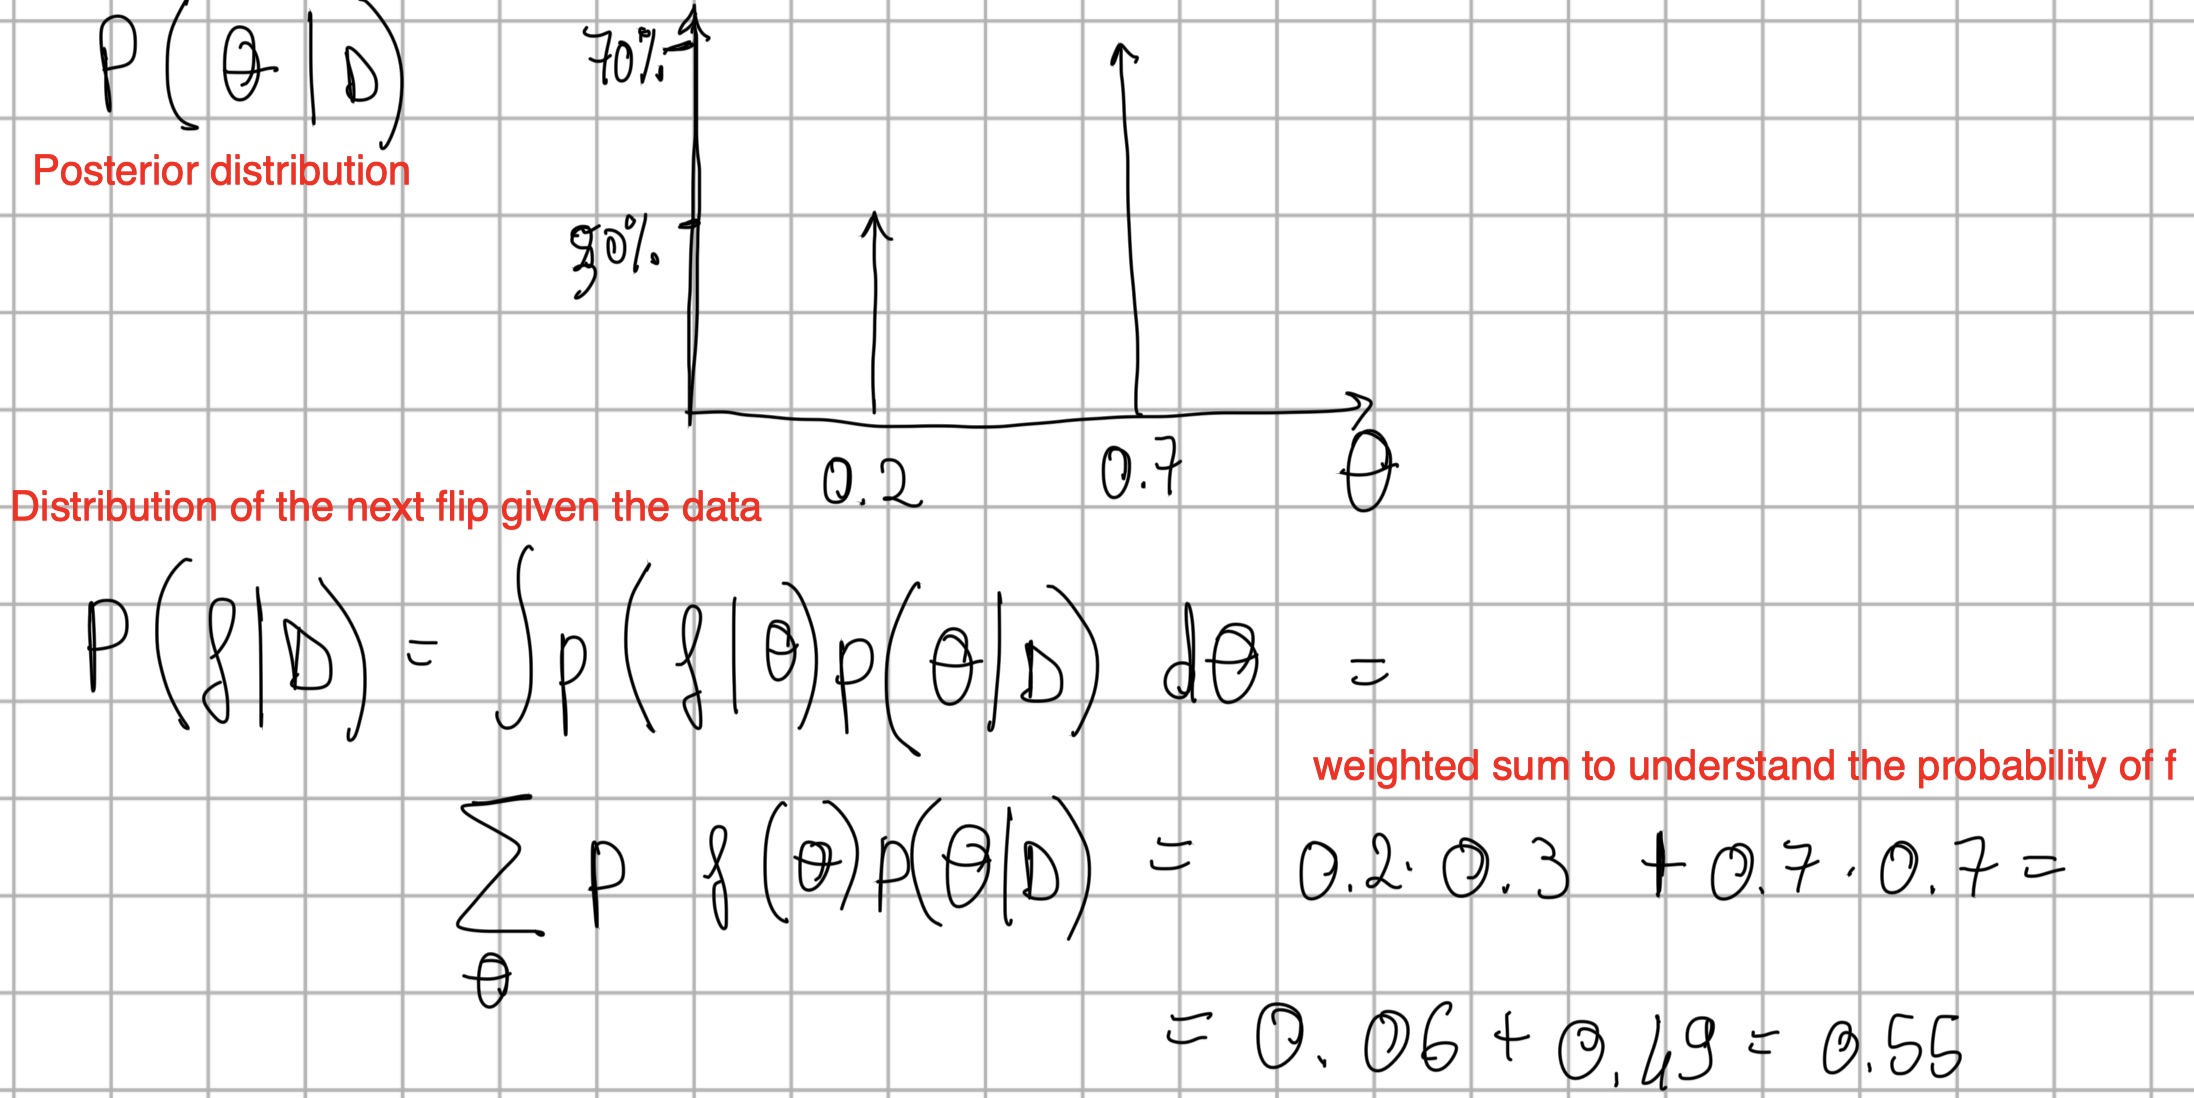 P(θ|D) 70%
Posterior distribution
30%
0.2 0.7 θ
Distribution of the next flip given the data
P(f|D) = ∫p(f|θ)p(θ|D) dθ =
weighted sum to understand the probability of f
∑ p f(θ)p(θ|D) = 0.2·0.3 + 0.7·0.7 =
θ
= 0.06 + 0.49 = 0.55